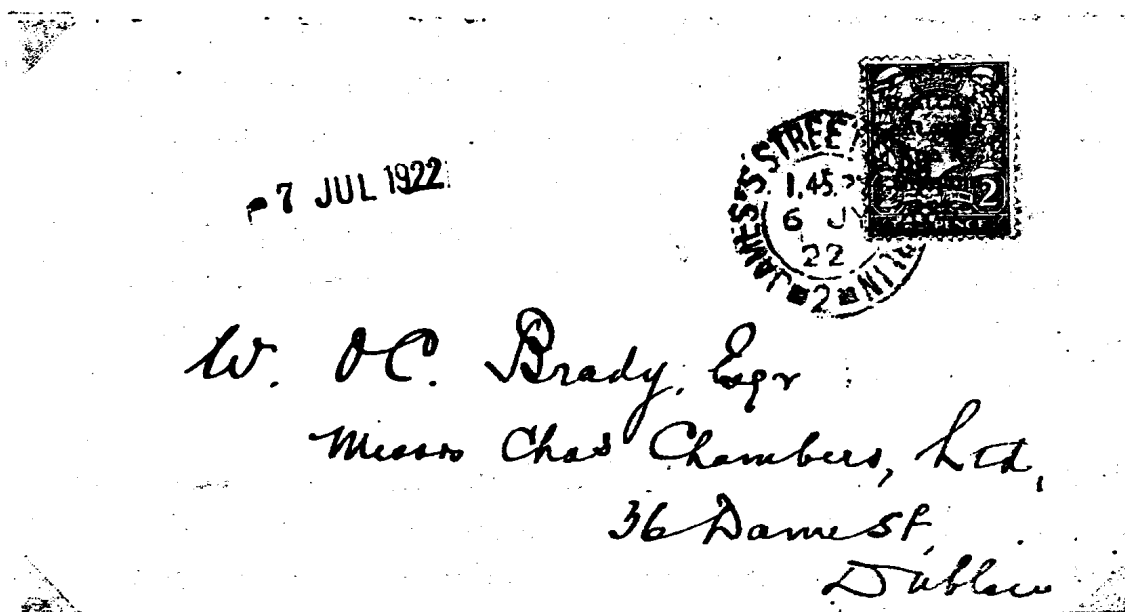 7 JUL 1922
JAMES'S STREET
1.45 P
6 JY
22
2
2
W. O'C. Brady, Esqr
Messrs Chas Chambers, Ltd,
36 Dame St,
Dublin